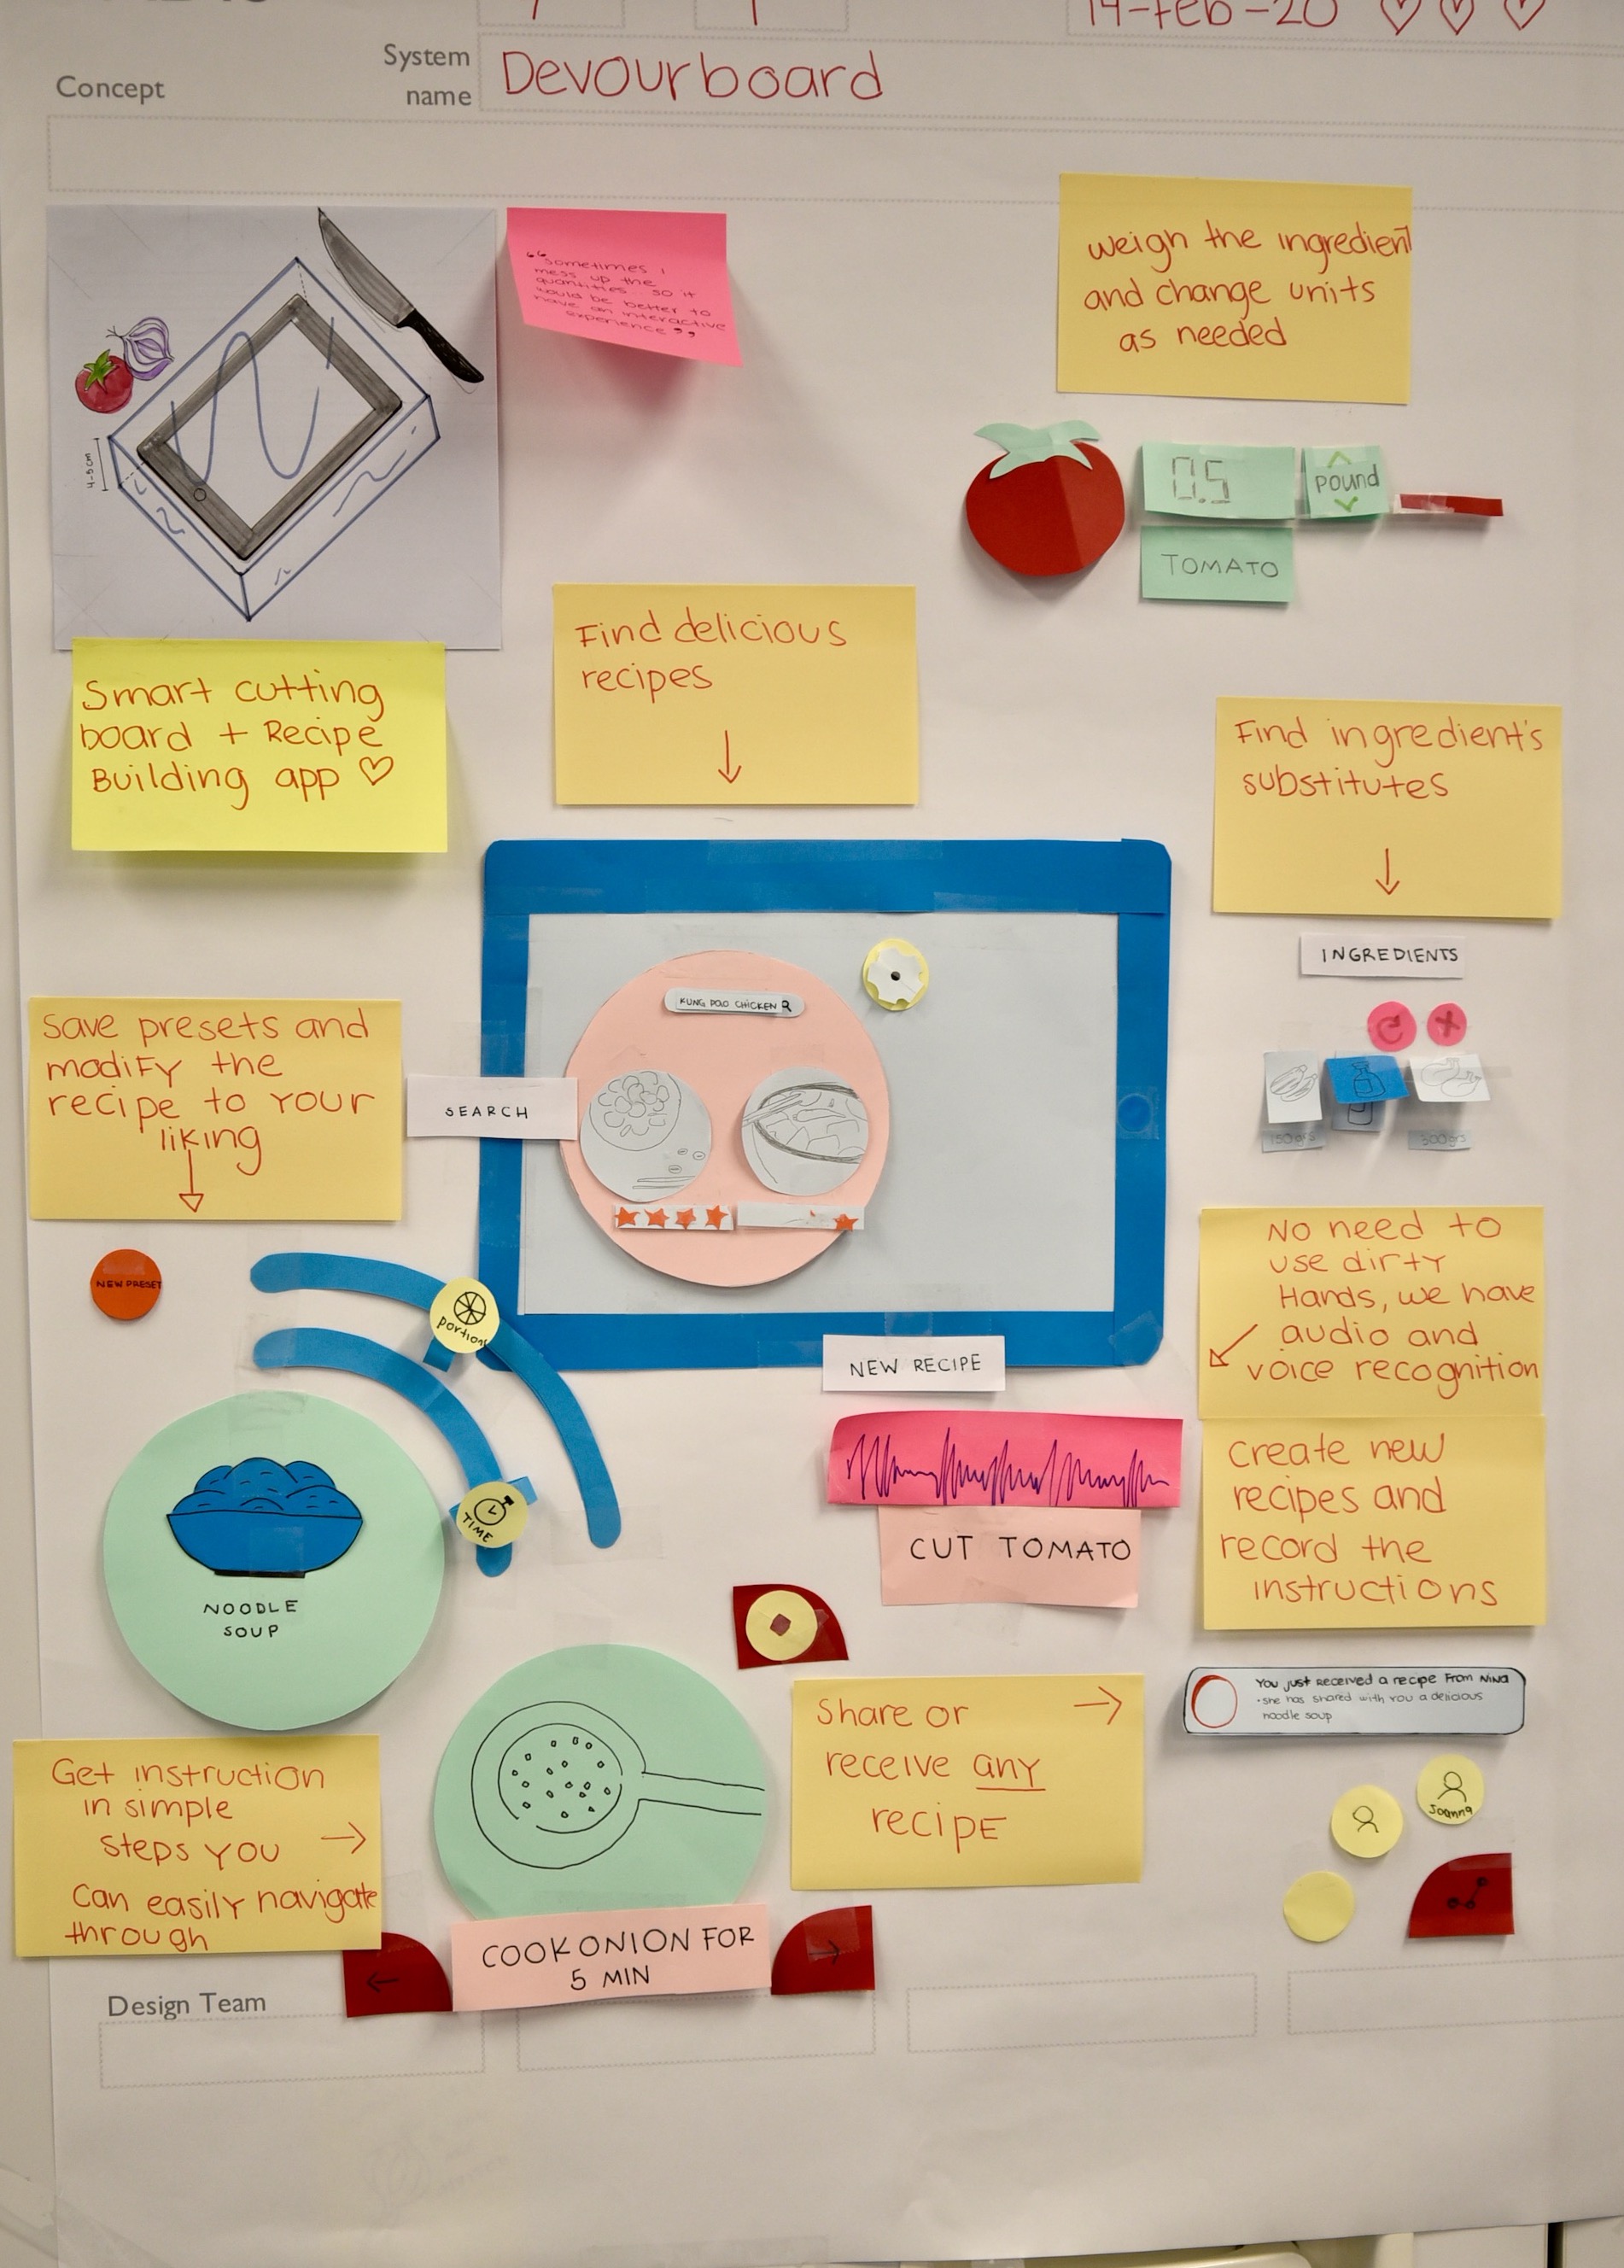 14-Feb-20
System
name
Devourboard
Concept
"Sometimes i
mess up the
quantities so it
would be better to
have an interactive
experience"
weigh the ingredient
and change units
as needed
4-5 cm
0.5
pound
TOMATO
Smart cutting
board + Recipe
Building app
Find delicious
recipes
Find ingredient's
substitutes
INGREDIENTS
150 grs
300 grs
KUNG PAO CHICKEN
Save presets and
modify the
recipe to your
liking
SEARCH
NEW PRESET
portions
TIME
NOODLE
SOUP
NEW RECIPE
No need to
use dirty
Hands, we have
audio and
voice recognition
CUT TOMATO
Create new
recipes and
record the
instructions
You just received a recipe from Nina
• she has shared with you a delicious
noodle soup
Share or
receive any
recipe
Joanna
Get instruction
in simple
steps you
can easily navigate
through
COOK ONION FOR
5 MIN
Design Team